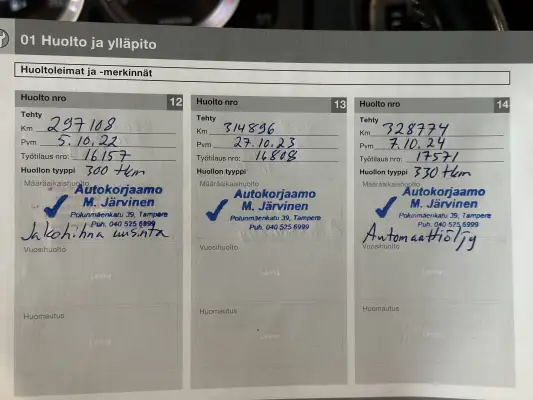 01 Huolto ja ylläpito
Huoltoleimat ja -merkinnät
Huolto nro 12
Tehty
Km 297108
Pvm 5.10.22
Työtilaus nro: 16157
Huollon tyyppi 300 tkm
Määräaikaishuolto
Autokorjaamo
M. Järvinen
Polunmäenkatu 39, Tampere
Puh. 040 525 6999
Jakohihna uusinta
Vuosihuolto
Leima
Huomautus
Leima
Huolto nro 13
Tehty
Km 314896
Pvm 27.10.23
Työtilaus nro: 16808
Huollon tyyppi
Määräaikaishuolto
Autokorjaamo
M. Järvinen
Polunmäenkatu 39, Tampere
Puh. 040 525 6999
Vuosihuolto
Leima
Huomautus
Leima
Huolto nro 14
Tehty
Km 328774
Pvm 7.10.24
Työtilaus nro: 17571
Huollon tyyppi 330 tkm
Määräaikaishuolto
Autokorjaamo
M. Järvinen
Polunmäenkatu 39, Tampere
Puh. 040 525 6999
Automaattiöljy
Vuosihuolto
Leima
Huomautus
Leima